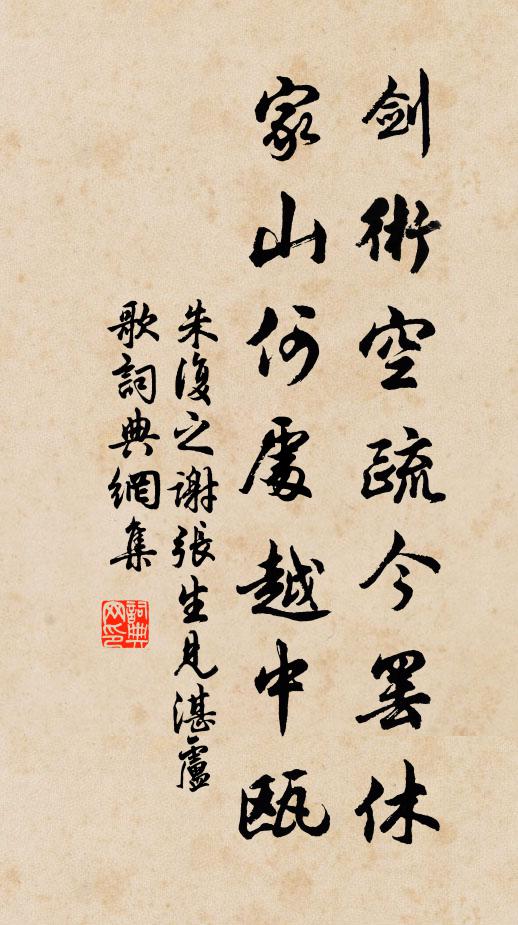 劍術空疏今罢休
家山何處越中甌
朱復之謝張生見湛廬
歌詞典網集
詞典网印